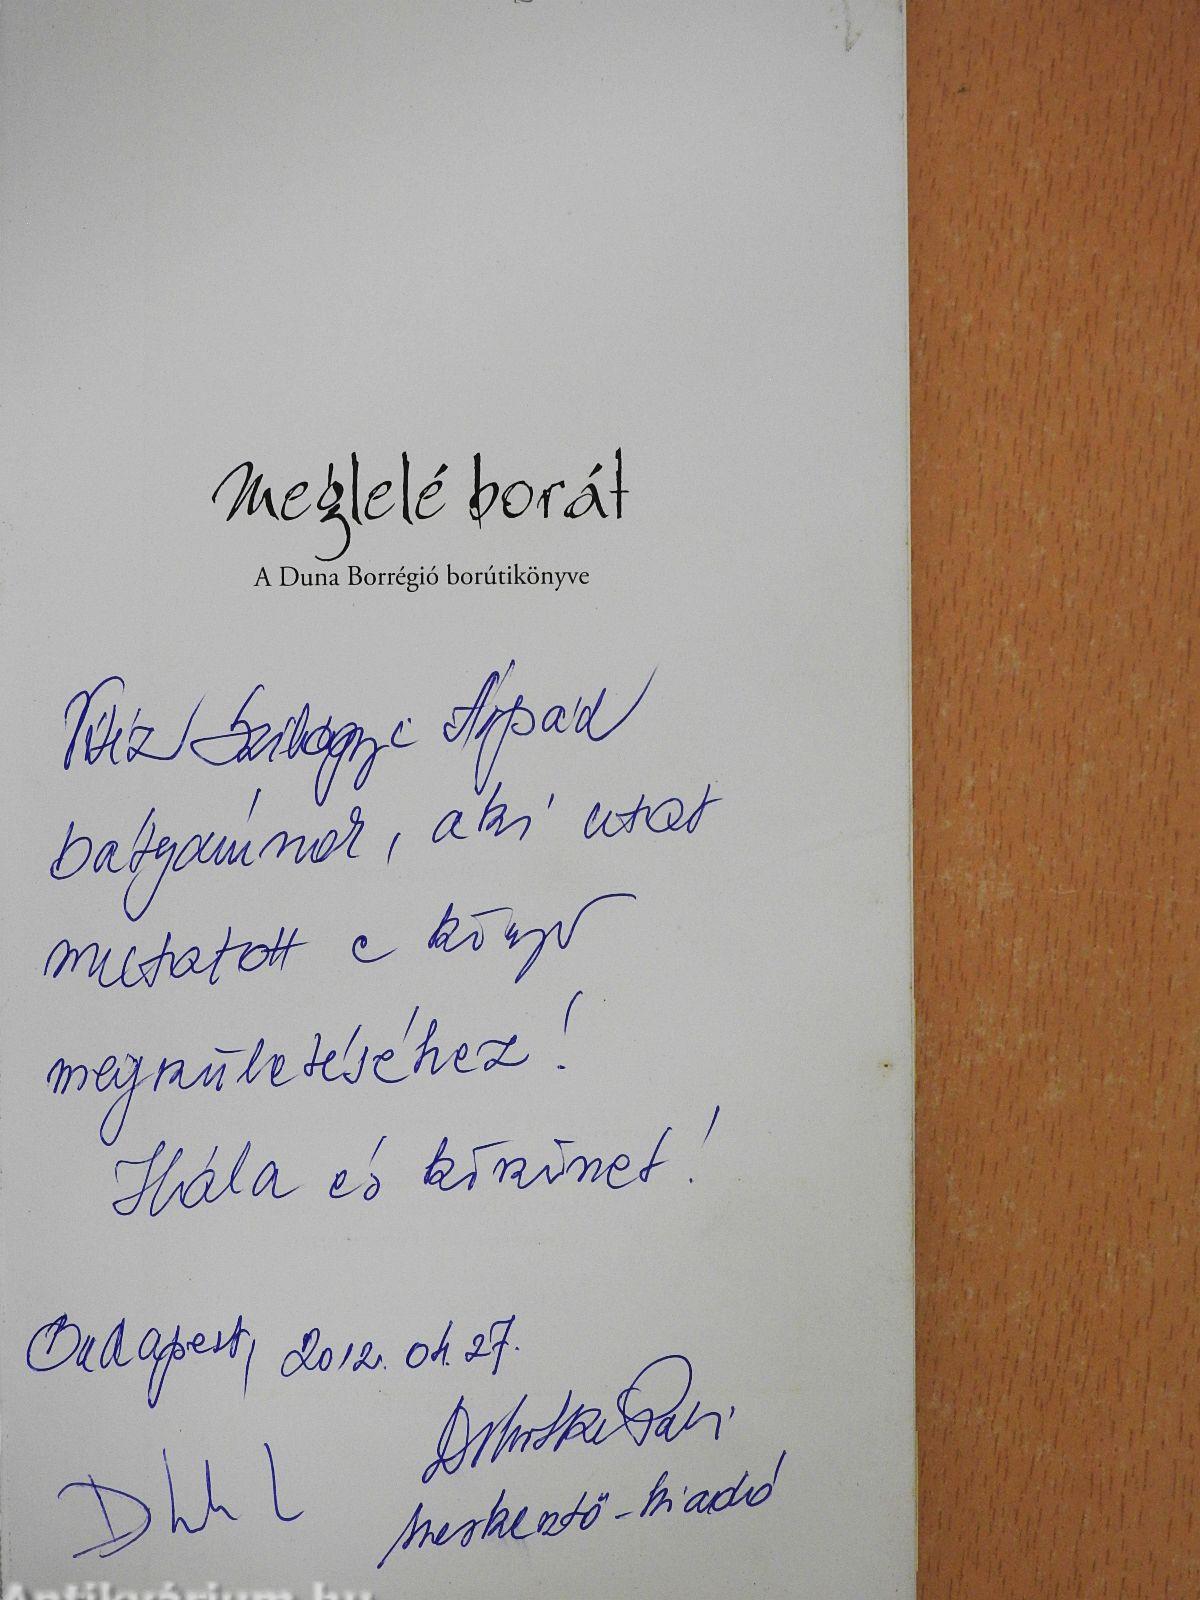 Meglelé borát
A Duna Borrégió borútikönyve
Vitéz Szilágyi Árpád
bátyámnak, aki utat
mutatott e könyv
megszületéséhez!
Hála és köszönet!
Budapest, 2012. 04. 27.
szerkesztő-kiadó
Antikvárium.hu